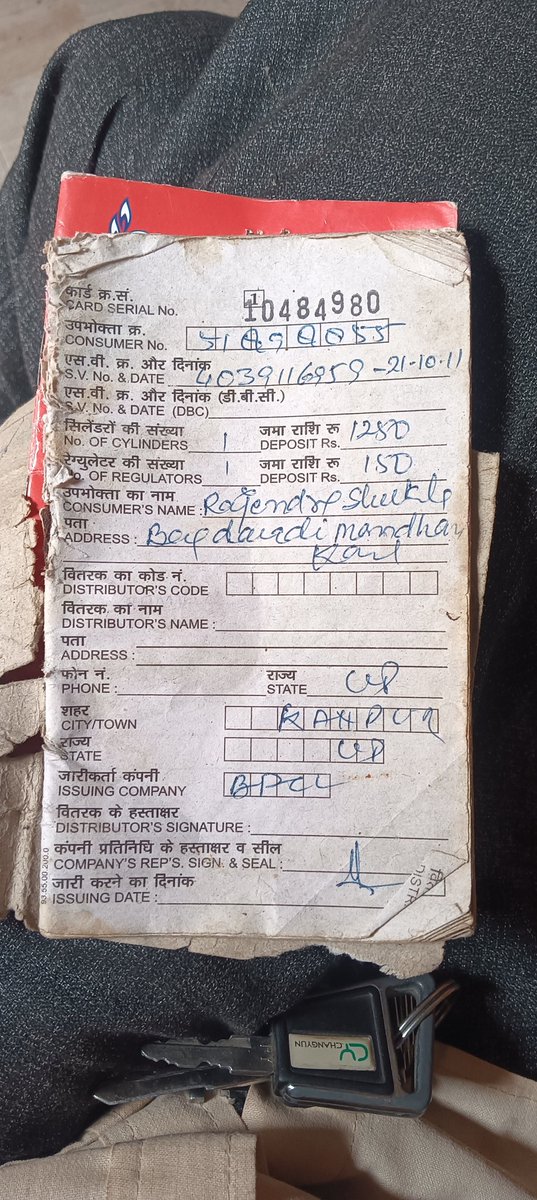 कार्ड क्र.सं.
CARD SERIAL No. 10484980
उपभोक्ता क्र.
CONSUMER No.
एस.वी. क्र. और दिनांक
S.V. No. & DATE 4039116959 - 21-10-11
एस.वी. क्र. और दिनांक (डी.बी.सी.)
S.V. No. & DATE (DBC)
सिलेंडरों की संख्या जमा राशि रू
No. OF CYLINDERS 1 DEPOSIT Rs. 1250
रेग्युलेटर की संख्या जमा राशि रू
No. OF REGULATORS 1 DEPOSIT Rs. 150
उपभोक्ता का नाम
CONSUMER'S NAME : Rajendra Shukla
पता
ADDRESS : mandhan
वितरक का कोड नं.
DISTRIBUTOR'S CODE
वितरक का नाम
DISTRIBUTOR'S NAME :
पता
ADDRESS :
फोन नं. राज्य
PHONE : STATE UP
शहर
CITY/TOWN KANPUR
राज्य
STATE UP
जारीकर्ता कंपनी
ISSUING COMPANY BPCL
वितरक के हस्ताक्षर
DISTRIBUTOR'S SIGNATURE :
कंपनी प्रतिनिधि के हस्ताक्षर व सील
COMPANY'S REP'S. SIGN. & SEAL :
जारी करने का दिनांक
ISSUING DATE :
CY CHANGYUN